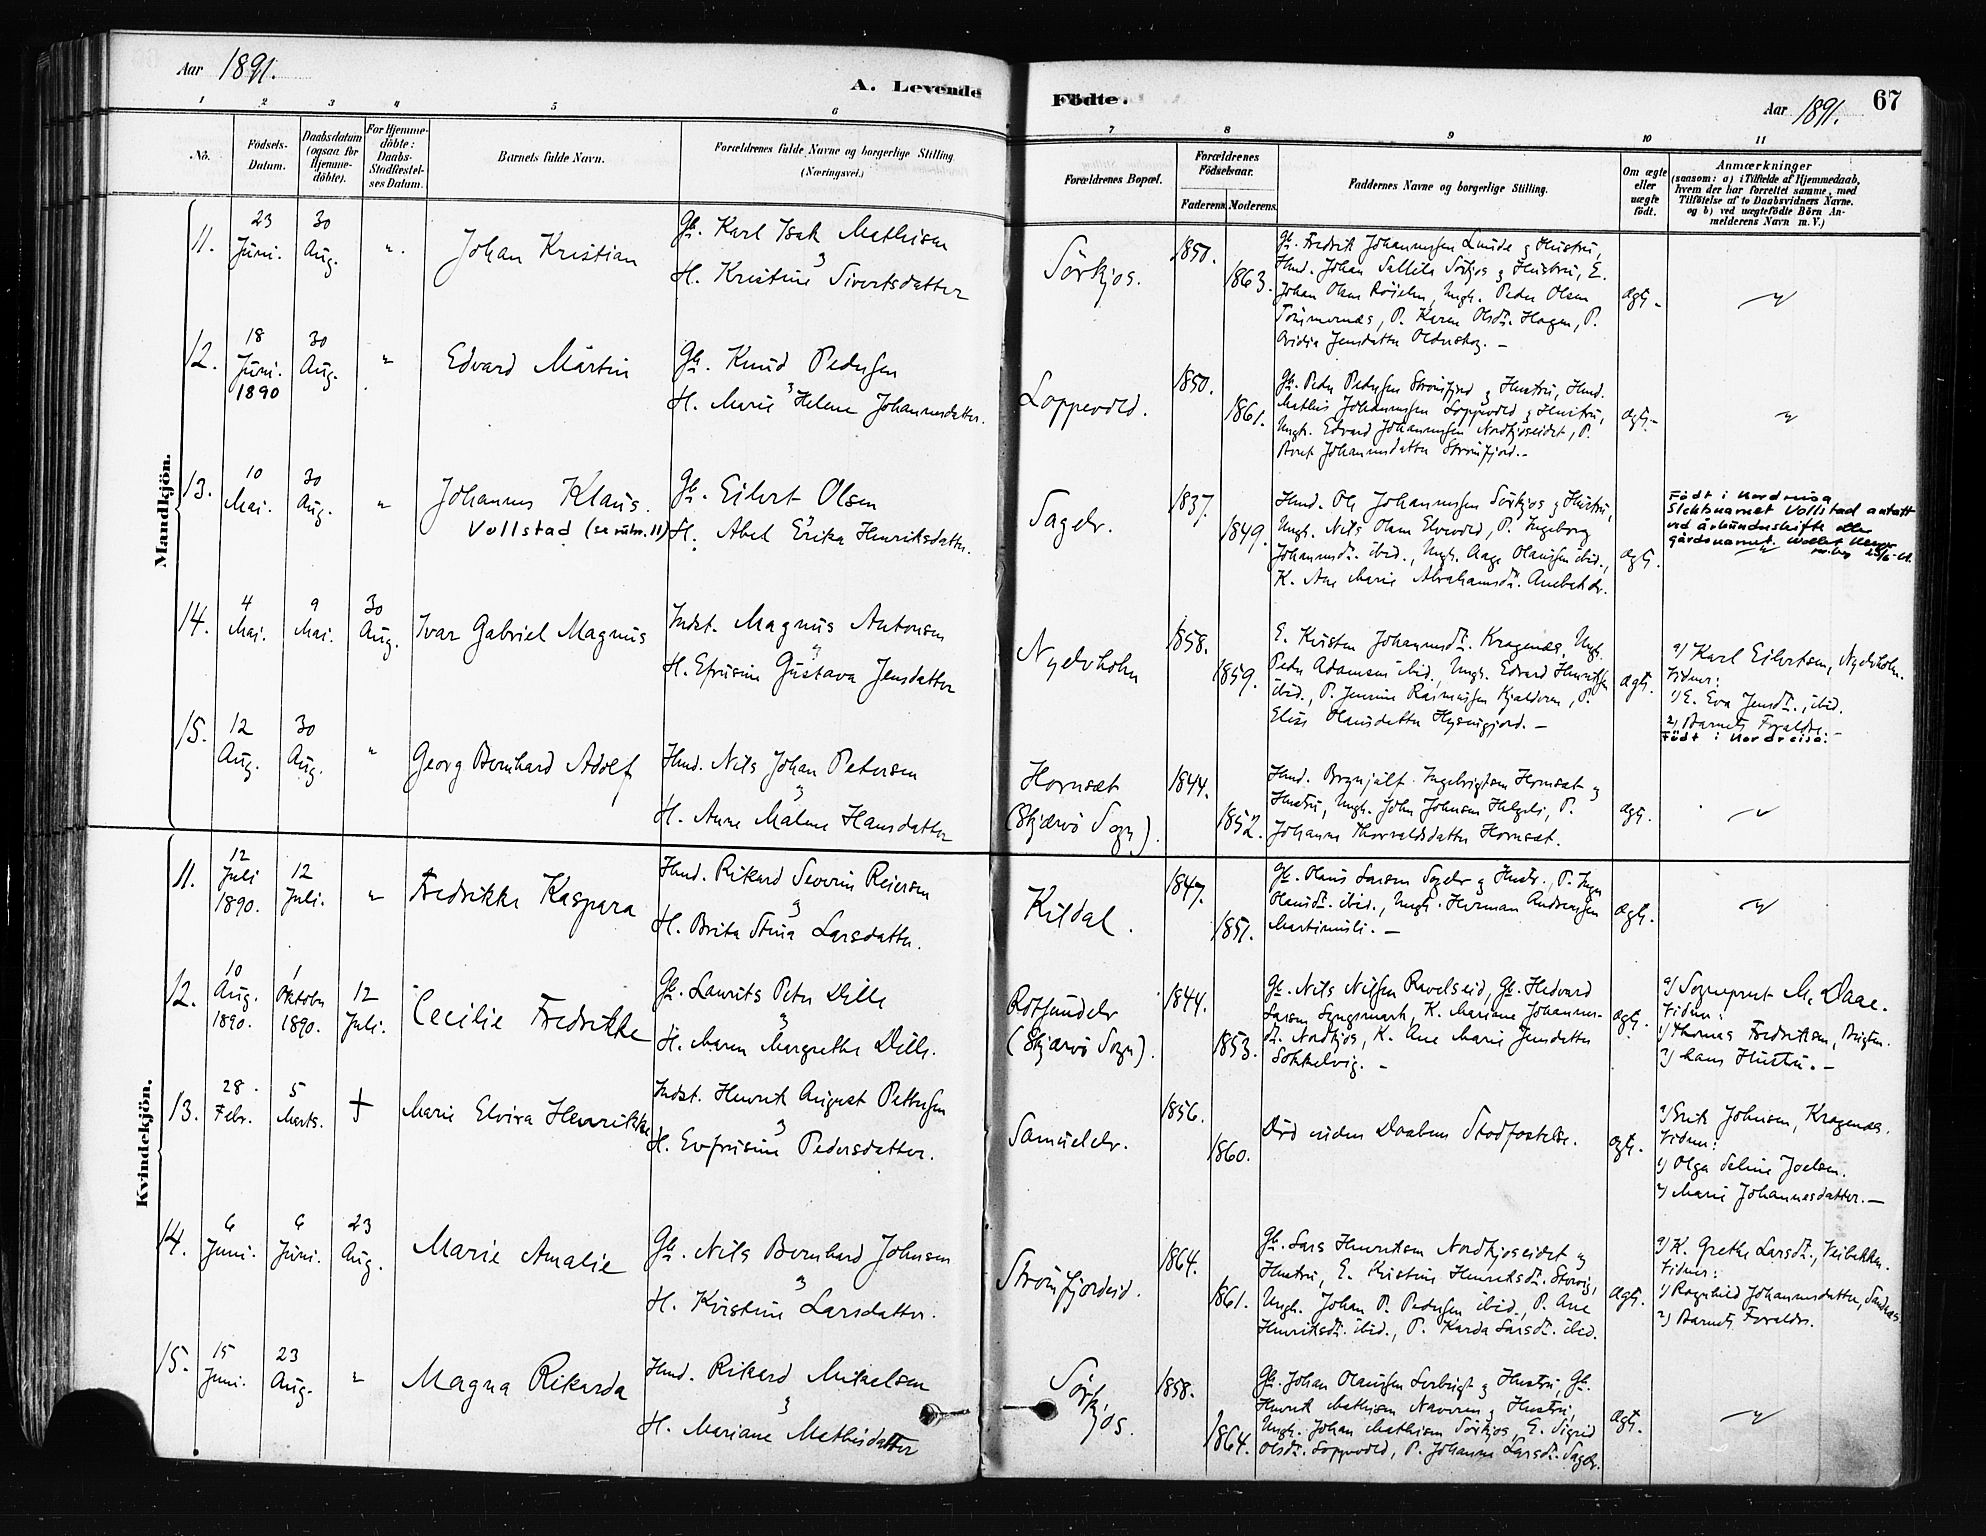 Aar 1891.
A. Levende
Födte.
Aar 1891.
67
1 2 3 4 5 6 7 8 9 10 11
No.
Födsels-
Datum.
Daabsdatum
(ogsaa for
Hjemme-
döbte).
For Hjemme-
döbte:
Daabs-
Stadfæstel-
ses Datum.
Barnets fulde Navn.
Forældrenes fulde Navne og borgerlige Stilling
(Næringsvei.)
Forældrenes Bopæl.
Forældrenes
Födselsaar.
Faderens. Moderens.
Faddernes Navne og borgerlige Stilling.
Om ægte
eller
uægte
födt.
Anmærkninger
(saasom: a) i Tilfælde af Hjemmedaab,
hvem der har forrettet samme, med
Tilföielse af to Daabsvidners Navne.
og b) ved uægtefödte Börn An-
melderens Navn m. V.)
Mandkjön.
11.
23
Juni.
30
Aug.
"
Johan Kristian
Gb. Karl Isak Mathisen
H. Kristine Sivertsdatter
Sörkjos.
1863.
Gb. Fredrik Johannessen Lunde og Hustru,
Johan Olsen Röielen, Ungk. Peder Olsen
Karen Olsdt. Hagen, P.
ægt.
12.
18
Juni.
1890
30
Aug.
"
Edvard Martin
Gb. Knud Pedersen
H. Marie Helene Johannesdatter.
Loppevold.
1850.
1861.
Gb. Peder Pedersen Strömfjord og Hustru, Hmd.
Mathis Johannessen Loppevold og Hustru,
Ungk. Edvard Johannessen Nordkjoseidet, P.
Johannesdatter Strömfjord.
ægt.
13.
10
Mai.
30
Aug.
"
Johannes Klaus.
Vollstad (se rubr. 11)
Gb. Eilert Olsen
H. Abel Erika Henriksdatter.
Sagelv.
1837.
1849.
Hmd. Ole Johannessen Sörkjos og Hustru,
Ungk. Nils Olsen Elvevold, P. Ingeborg
Johannesdt. ibid., Ungk. Aage Olaussen ibid.,
K. Ane Marie Abrahamsdt.
ægt.
Födt i Nordreisa
Slektsnavnet Vollstad antatt
ved
gårdsnavnet.
14.
4
Mai.
9
Mai.
30
Aug.
Ivar Gabriel Magnus
Indst. Magnus Antonsen
H. Efrusine Gustava Jensdatter
Nyelvholm
1858.
1859.
E. Kirsten Johannesdt. Kragenæs, Ungk.
Peder Adamsen ibid., Ungk. Edvard Henriksen
ibid., P. Jensine Rasmussen Kjelderen, P.
Elise Olausdatter
ægt.
a) Karl Eilertsen, Nyelvholm.
Vidner:
1) E. Eva Jensdt., ibid.
2) Barnets Forældre.
Födt i Nordreisa.
15.
12
Aug.
30
Aug.
"
Georg Bernhard Adolf
Hmd. Nils Johan Petersen
H. Anne Malene Hansdatter
Hornsæt
(Skjærvö Sogn).
1844.
1852.
Hmd. Brynjulf Ingebrigtsen Hornsæt og
Hustru, Ungk. John Johnsen Helgeli, P.
Johanna Thorvaldsdatter Hornsæt.
ægt.
Kvindekjön.
11.
12
Juli
1890.
12
Juli.
"
Fredrikke Kaspara
Hmd. Rikard Severin Reiersen
H. Brita Stina Larsdatter.
Kildal.
1847.
1851.
Gb. Olaus Larsen Sagelv og Hustr., P. Inga
Olausdt. ibid., Ungk. Herman Andreassen
ægt.
12.
10
Aug.
1890.
1
Oktober
1890.
12
Juli.
Cecilie Fredrikke
Gb. Laurits Peter Dille
H. Maren Margrethe Dille.
Rotsundelv
(Skjærvö Sogn).
1844.
1853.
Gb. Nils Nilsen Ravelseid, Gb. Hedvard
Larsen K. Mariane Johannes-
dt. Nordkjos, K. Ane Marie Jensdatter
Sokkelvig.
ægt.
a) Sogneprest M. Daae.
Vidner:
1) Thomas Fredriksen,
2) hans Hustru.
13.
28
Febr.
5
Marts.
†
Marie Elvira Henrikke
Indst. Henrik August Pettersen
H. Evfrusine Pedersdatter.
Samuelelv.
1856.
1860.
Död uden Daabens Stadfæstelse.
ægt.
a) Erik Johnsen, Kragenæs.
Vidner:
1) Olga Seline Joelsen.
2) Marie Johannesdatter.
14.
6
Juni.
6
Juni.
23
Aug.
Marie Amalie
Gb. Nils Bernhard Johnsen
H. Kristine Larsdatter.
Strömfjordeid.
1864.
1861.
Gb. Lars Henriksen Nordkjoseidet og
Hustru, E. Kristine Henriksdt. Storvig,
Ungk. Johan P. Pedersen ibid., P. Ane
Henriksdt. ibid., P. Karda Larsdt. ibid.
ægt.
a) K. Grethe Larsdt., Veibakken.
Vidner:
1) Ragnhild Johannesdatter, Sandnæs
2) Barnets Forældre.
15.
15
Juni.
23
Aug.
"
Magna Rikarda
Hmd. Rikard Mikelsen
H. Mariane Mathisdatter
Sörkjos.
1858.
1864.
Gb. Johan Olaussen og Hustru, Gb.
Henrik Mathisen Naveren og Hustru,
Ungk. Johan Mathisen Sörkjos, E. Sigrid
Olsdt. Loppevold, P. Johanne Larsdt. Sagelv.
ægt.